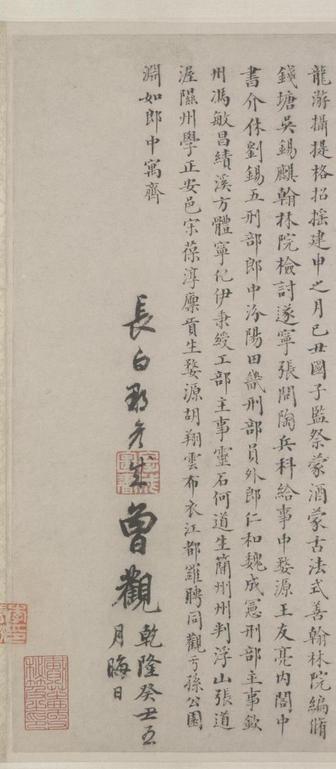 龍游攝提格招搖建申之月己丑國子監祭酒蒙古法式善翰林院編脩
錢塘吳錫麒翰林院檢討遂寧張問陶兵科給事中婺源王友亮内閣中
書介休劉錫五刑部郎中汾陽田畿刑部員外郎仁和魏成憲刑部主事欽
州馮敏昌績溪方體寧化伊秉綬工部主事靈石何道生蘭州州判浮山張道
渥隰州學正安邑宋葆淳廪貢生婺源胡翔雲布衣江都羅聘同觀于孫公園
淵如郎中寓齋
長白
曾觀
乾隆癸丑五
月晦日